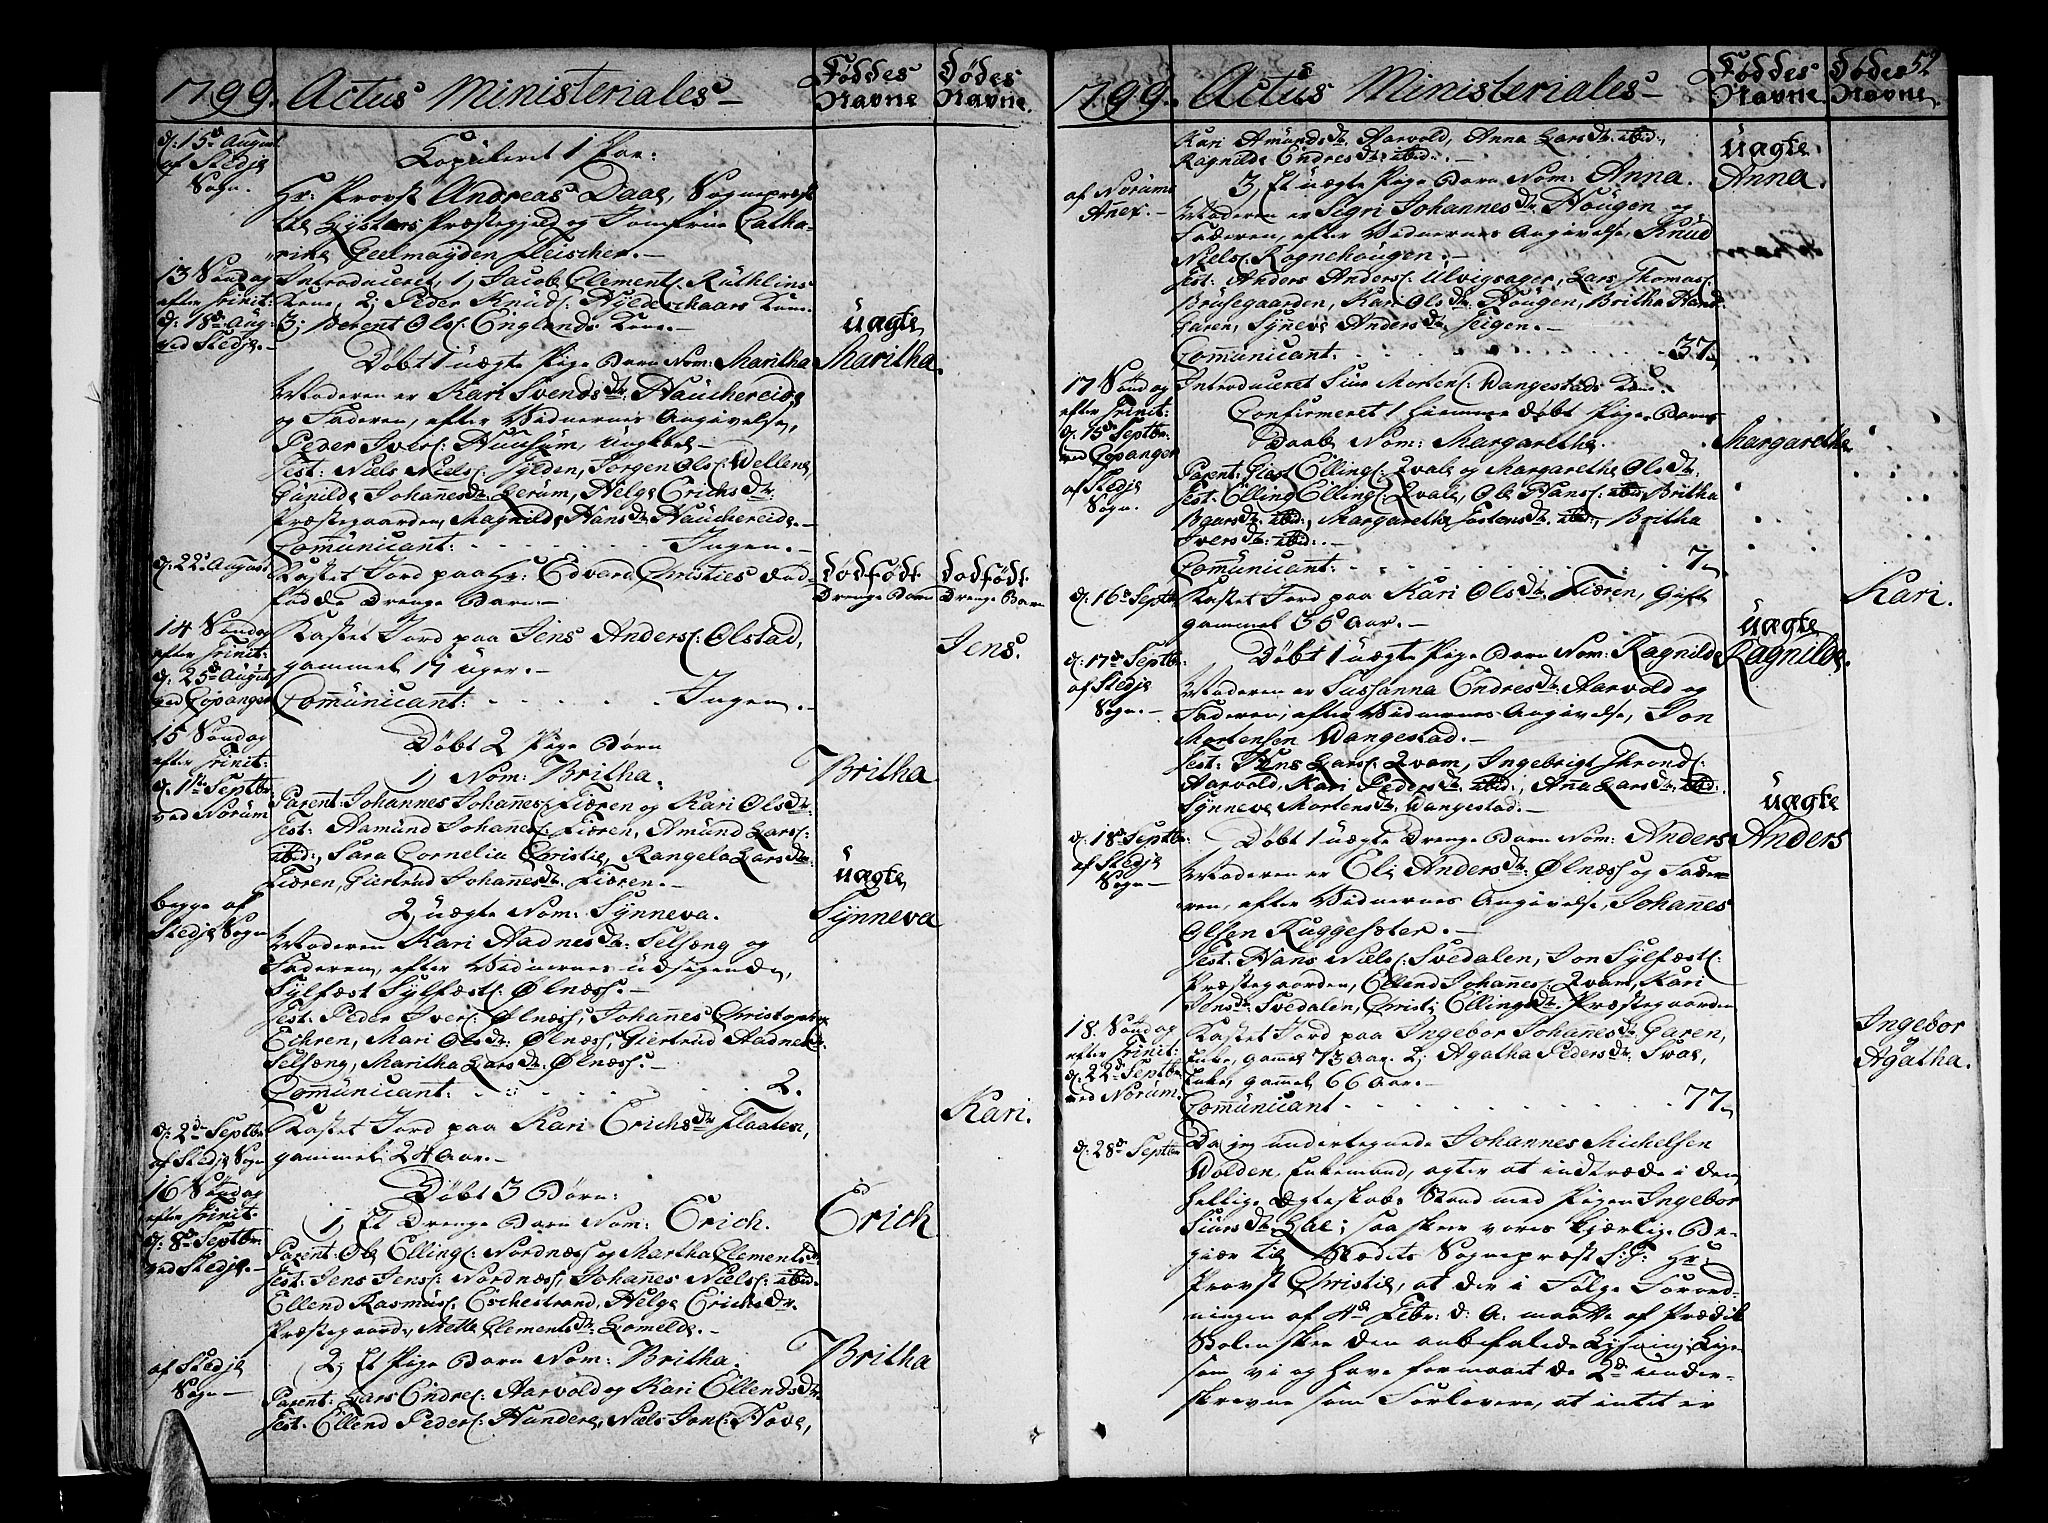 1799. Actus Ministeriales Föddes Navne Dödes Navne.
d: 15de August af Stedje Sogn. Copuleret 1 Par:
Hr: Provst Andreas Daae, Sognepræst
til Lysters Præstegjeld og Jomfrue Catha-
rina Geelmøyden Fleischer.
13 Søndag efter Trinit: d: 18de Aug: ved Stedje. Introduceret, 1, Jacob Clements: Rüthlins
Kone, 2, Peder Knüds: Hylderhaars Kone
3, Berent Ols: Englands Kone.
Döbt 1 uægte Pige Barn Nom: Maritha üægte Maritha.
Moderen er Kari Svends dtr: Haüchereide
og Faderen, efter Vidnernes Angivelse,
Peder Ivers: Hunsüm, Ungkarl
Test: Niels Niels: Fylden, Jørgen Ols: Wellene,
Günilde Johannes dtr: Lerüm, Helge Erichs dtr:
Præstegaarden, Magnilde Hans dtr: Haüchereide.
Com̄ünicant: Ingen.
d: 22de August Kastet Jord paa Hr: Edvard Christies död-
födde Drenge Barn. Dödfödt Drenge Barn Dödfödt Drenge Barn
14 Søndag efter Trinit: d: 25de August ved Copanger Kastet Jord paa Jens Anders: Ølstad, Jens.
gammel 17 Uger.
Com̄ünicant: Ingen.
15 Søndag efter Trinit: d: 1ste Septbr: ved Norüm Döbt 2 Pige Börn
1, Nom: Britha. Britha
Parent: Johannes Johan̄es: Fiæren og Kari Ols dtr:
Test: Aamünd Johan̄es: Fiæren, Amünd Lars:
ibid:, Sara Cornelia Christie, Rangela Lars dtr:
Fiæren, Giertrüd Johan̄es dtr: Fiæren.
begge af Stedje Sogn 2, uægte Nom: Synneva. üægte Synneva
Moderen Kari Aadnes dtr: Selseng og
Faderen, efter Vidnernes udsigende,
Sylfæst Sylfæst: Ølnæss.
Test: Peder Ivers: Ølnæss, Johan̄es Christoph:
Eihren, Mari Ols dtr: Ølnæss, Giertrüd Aadnes dtr:
Selseng, Maritha Lars dtr: Ølnæss.
Com̄ünicant: 2.
d: 2den Septbr: af Stedje Sogn Kastet Jord paa Kari Erichs dtr: Flaaten, Kari.
gammel 24 Aar.
16 Søndag efter Trinit: d: 8de Septbr: ved Stedje. Döbt 3 Börn:
1, Et Drenge Barn Nom: Erich. Erich
Parent: Ole Elling: Nordnæs og Martha Clements dtr:
Test: Jens Jens: Nordnæs, Johan̄es Niels: ibid:
Ellend Rasmüs: Eschestrand, Helge Erichs dtr:
Præstegaard:, Mette Clements dtr: Lomelde.
af Stedje Sogn 2, Et Pige Barn Nom: Britha. Britha
Parent: Lars Endre: Aarvold og Kari Ellends dtr:
Test: Ellend Peders: Hundere, Niels Jons: Hove,
1799. Actus Ministeriales Föddes Navne Dödes Navne. 52
Kari Amünds dtr: Aarvold, Anna Lars dtr: ibid:,
Ragnilde Endres dtr: ibid:.
af Norüms An̄ex. 3, Et uægte Pige Barn Nom: Anna. üægte Anna.
Moderen er Segri Johannes dtr: Hougen og
Faderen, efter Vidnernes Angivelse, Knüd
Niels: Rognehougen.
Test: Anders Anders: Ulvigsager, Lars Thomas:
Brusegaarden, Kari Ols dtr: Hougen, Britha Hans dtr:
Garen, Synneve Anders dtr: Feigen.
Com̄ünicant: 37
17 Søndag efter Trinit: d: 15de Septbr: ved Copanger Introduceret Siur Mortens: Wangestads Kone.
Confirmeret 1 hiemme döbt Pige Barns
Daab Nom: Margarethe. Margarethe
af Stedje Sogn. Parent: Elling: Qvale og Margarethe Ols dtr:
Test: Elling Elling: Qvale, Ole Hans: ibid:, Britha
Baars dtr: ibid:, Margarethe Tostens dtr: ibid:, Britha
Ivers dtr: ibid:.
Com̄ünicant: 7
d: 16de Septbr: Kastet Jord paa Kari Ols dtr: Fiæren, Gift Kari.
gammel 55 Aar.
d: 17de Septbr: af Stedje Sogn. Döbt 1 uægte Pige Barn Nom: Ragnilde üægte Ragnilde.
Moderen er Sussanna Endres dtr: Aarvold og
Faderen, efter Vidnernes Angivelse, Jon
Mortensen Wangestad.
Test: Jens Lars: Qvam, Ingebrigt Thrond:
Aarvold, Kari Peders dtr: ibid:, An̄a Lars dtr: ibid:
Synneve Mortens dtr: Wangestad.
d: 18de Septbr: af Stedje Sogn Döbt 1 uægte Drenge Barn Nom: Anders üægte Anders
Moderen er Eli Anders dtr: Ølnæss og Fade-
ren, efter Vidnernes Angivelse, Johan̄es
Olsen Ruggesæter.
Test: Hans Niels: Svedalen, Jon Sylfæst:
Præstegaarden, Ellend Johan̄es: Qvam, Kari
Jens dtr: Svedalen, Christi Ellings dtr: Præstegaarden
18. Søndag efter Trinit: d: 22de Septbr: ved Norüm. Kastet Jord paa Ingebor Johan̄es dtr: Garen, Ingebor
Enke, gammel 73 Aar. 2, Agatha Peders dtr: Svae, Agatha.
Enke, gammel 66 Aar.
Com̄ünicant 77
d: 28de Septbr: Da jeg undertegnede Johannes Michelsen
Wolden, Enkemand, agter at indtræde i den
hellige Ægteskabs Stand med Pigen Ingebor
Siurs dtr: Lae; saa skeer vores kjærlige Be-
giær til Stædets Sognepræst S: T: Hr:
Provst Christie, at der i Følge Forord-
ningen af 4de Febr: d: A: maatte af Prædike
Stolen skee den anbefalede Lysning; Lige-
som vi og have formaaet de 2de under-
skrevne som Forlovere, at intet er